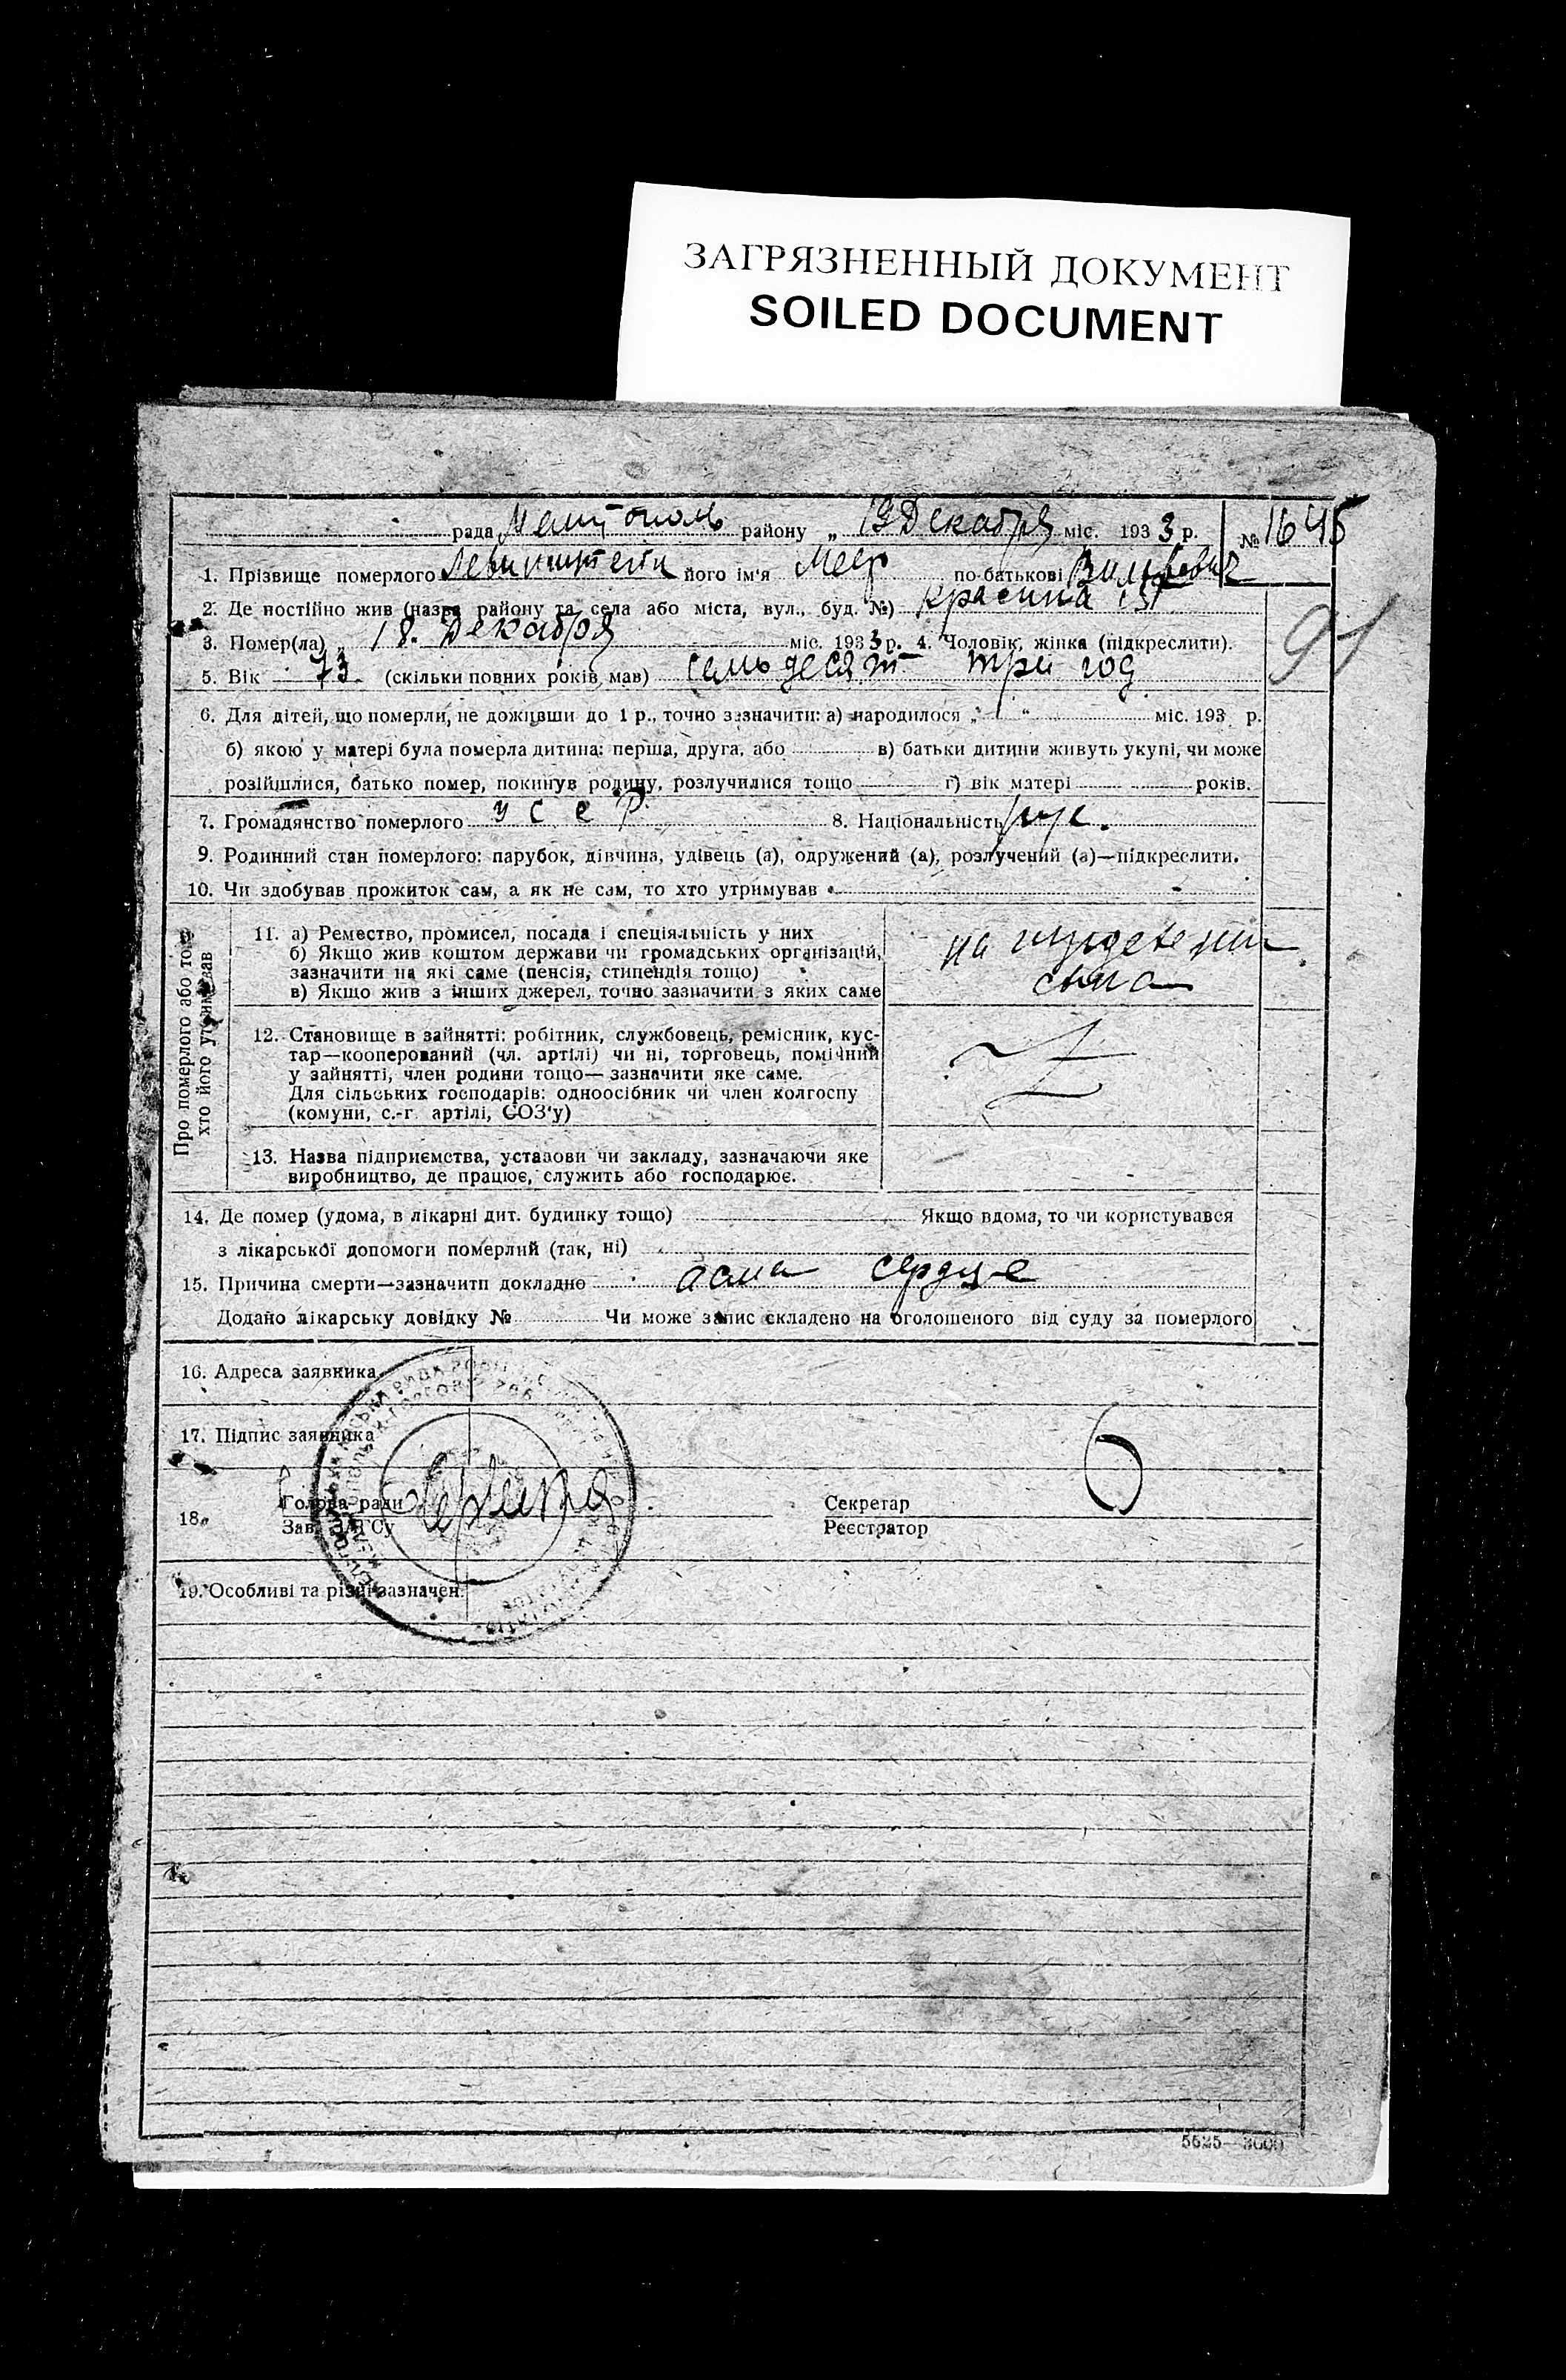 ЗАГРЯЗНЕННЫЙ ДОКУМЕНТ
SOILED DOCUMENT
рада Мелитополь району „ 19 Декабря міс. 1933 р. № 1645
1. Прізвище померлого Левинштейн його ім'я Меер по-батькові Вольфович
2. Де постійно жив (назва району та села або міста, вул., буд. №) Красина
3. Помер(ла) „ 18. Декабря міс. 1933 р. 4. Чоловік, жінка (підкреслити).
91
5. Вік 73. (скільки повних років мав) семьдесят три год
6. Для дітей, що померли, не доживши до 1 р., точно зазначити: а) народилося „ “ міс. 193 р.
б) якою у матері була померла дитина: перша, друга, або в) батьки дитини живуть укупі, чи може
розійшлися, батько помер, покинув родину, розлучилися тощо г) вік матері років.
7. Громадянство померлого У С С Р 8. Національність
9. Родинний стан померлого: парубок, дівчина, удівець (а), одружений (а), розлучений (а)—підкреслити.
10. Чи здобував прожиток сам, а як не сам, то хто утримував
Про померлого або того хто його утримував
11. а) Ремество, промисел, посада і спеціяльність у них
б) Якщо жив коштом держави чи громадських організацій,
зазначити на які саме (пенсія, стипендія тощо)
в) Якщо жив з інших джерел, точно зазначити з яких саме
на иждевении
сына
12. Становище в зайнятті: робітник, службовець, ремісник, кус-
тар—кооперований (чл. артілі) чи ні, торговець, помічний
у зайнятті, член родини тощо—зазначити яке саме.
Для сільських господарів: одноосібник чи член колгоспу
(комуни, с.-г. артілі, СОЗ'у)
13. Назва підприємства, установи чи закладу, зазначаючи яке
виробництво, де працює, служить або господарює.
14. Де помер (удома, в лікарні дит. будинку тощо) Якщо вдома, то чи користувався
з лікарської допомоги померлий (так, ні)
15. Причина смерти—зазначити докладно асма сердце
Додано лікарську довідку № Чи може запис складено на оголошеного від суду за померлого
16. Адреса заявника
17. Підпис заявника
18. Голова ради Секретар
Зав. ЗАГСу Реєстратор
19. Особливі та різні зазначен.
5525—3000